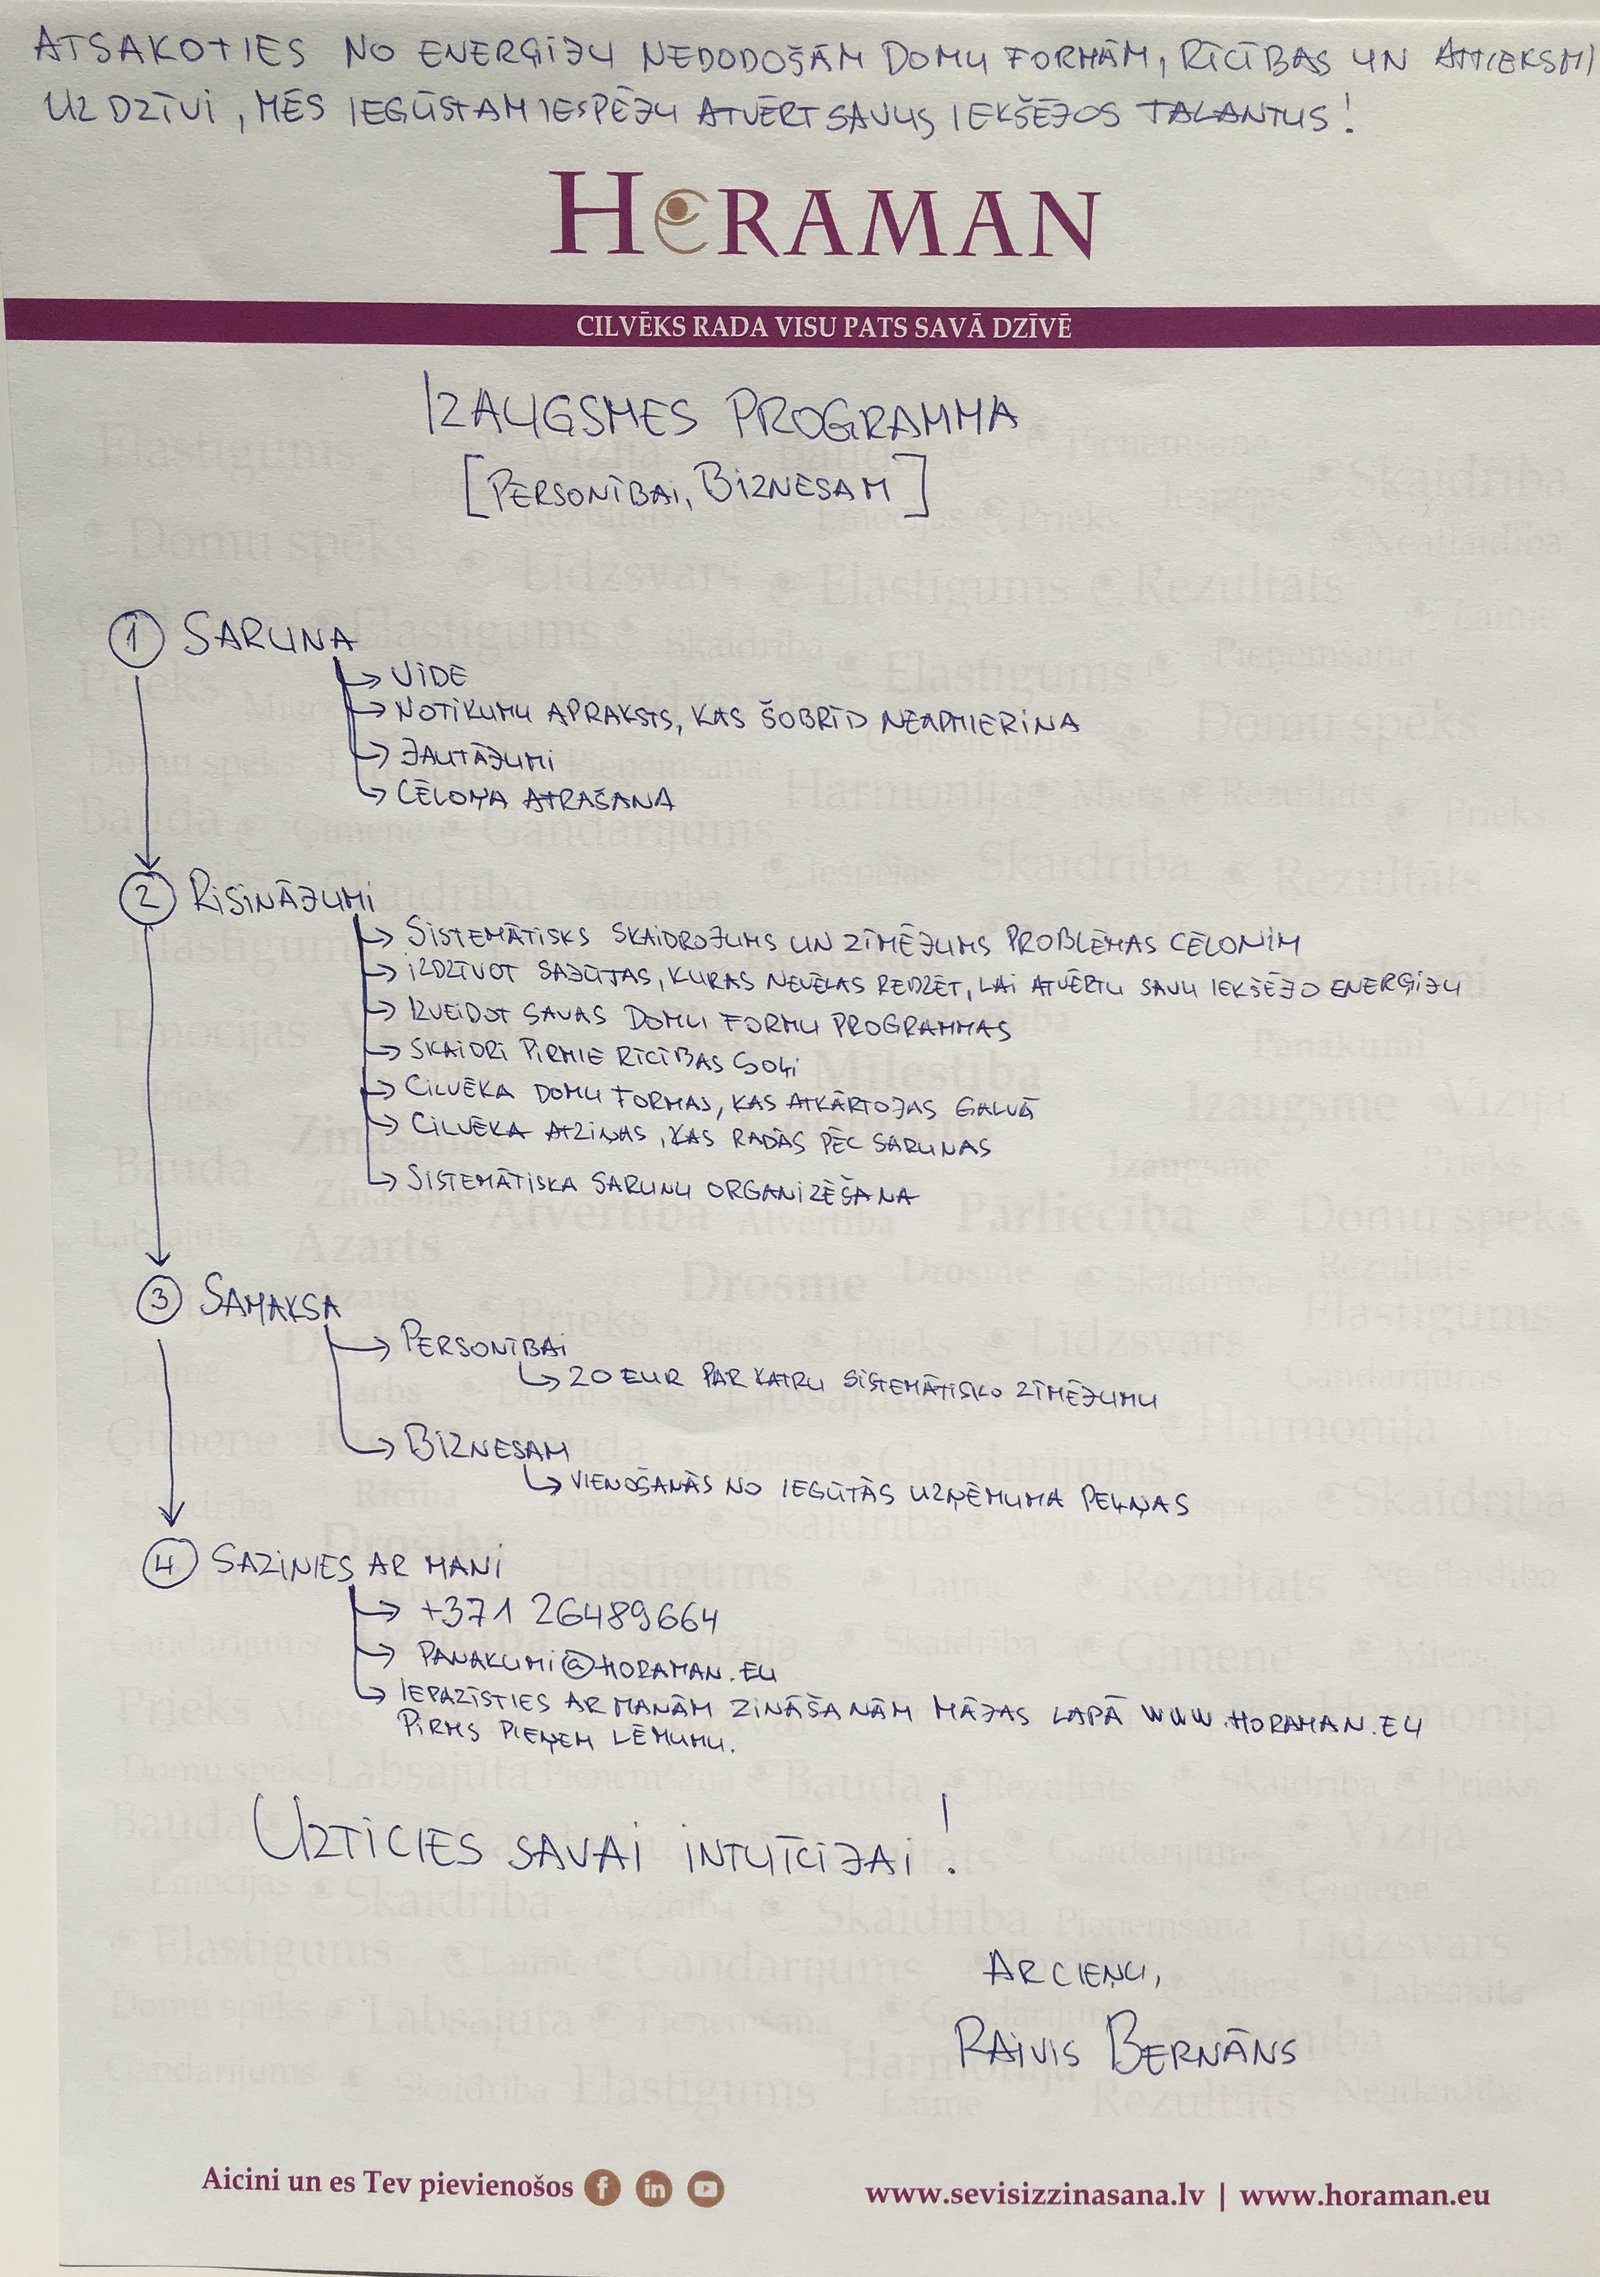 ATSAKOTIES NO ENERĢIJU NEDODOŠĀM DOMU FORMĀM, RĪCĪBAS UN ATTIEKSMI
UZ DZĪVI, MĒS IEGŪSTAM IESPĒJU ATVĒRT SAVUS IEKŠĒJOS TALANTUS!
HORAMAN
CILVĒKS RADA VISU PATS SAVĀ DZĪVĒ
IZAUGSMES PROGRAMMA
[PERSONĪBAI, BIZNESAM]
1 SARUNA
VIDE
NOTIKUMU APRAKSTS, KAS ŠOBRĪD NEAPMIERINA
JAUTĀJUMI
CĒLOŅA ATRAŠANA
2 RISINĀJUMI
SISTEMĀTISKS SKAIDROJUMS UN ZĪMĒJUMS PROBLĒMAS CĒLONIM
IZDZĪVOT SAJŪTAS, KURAS NEVĒLAS REDZĒT, LAI ATVĒRTU SAVU IEKŠĒJO ENERĢIJU
IZVEIDOT SAVAS DOMU FORMU PROGRAMMAS
SKAIDRI PIRMIE RĪCĪBAS SOĻI
CILVĒKA DOMU FORMAS, KAS ATKĀRTOJAS GALVĀ
CILVĒKA ATZIŅAS, KAS RADĀS PĒC SARUNAS
SISTEMĀTISKA SARUNU ORGANIZĒŠANA
3 SAMAKSA
PERSONĪBAI
20 EUR PAR KATRU SISTEMĀTISKO ZĪMĒJUMU
BIZNESAM
VIENOŠANĀS NO IEGŪTĀS UZŅĒMUMA PEĻŅAS
4 SAZINIES AR MANI
+371 26489664
PANAKUMI@HORAMAN.EU
IEPAZĪSTIES AR MANĀM ZINĀŠANĀM MĀJAS LAPĀ WWW.HORAMAN.EU
PIRMS PIEŅEM LĒMUMU.
UZTICIES SAVAI INTUĪCIJAI!
AR CIEŅU,
RAIVIS BERNĀNS
Aicini un es Tev pievienošos
www.sevisizzinasana.lv | www.horaman.eu